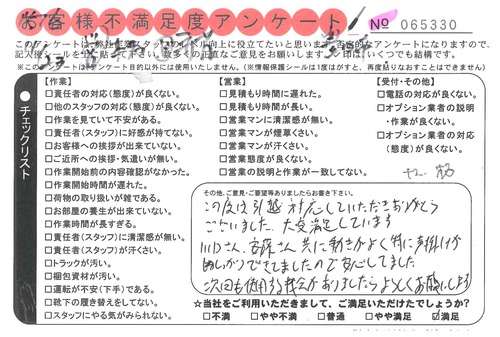 お客様不満足度アンケート
No 065330
このアンケートは、弊社
向上に役立てたいと思います。
記入後シールを
数多くの正直なご意見をお願いします。
はいくつでも結構です。
このアンケートは
アンケート目的以外には使用いたしません。(※情報保護シールは1度はがすと、再度貼りなおすことはできません)
チェックリスト
【作業】
□責任者の対応(態度)が良くない。
□他のスタッフの対応(態度)が良くない。
□作業を見ていて不安がある。
□責任者(スタッフ)に好感が持てない。
□お客様への挨拶が出来ていない。
□ご近所への挨拶・気遣いが無い。
□作業開始前の内容確認がなかった。
□作業開始時間が遅れた。
□荷物の取り扱いが雑である。
□お部屋の養生が出来ていない。
□作業時間が長すぎる。
□責任者(スタッフ)に清潔感が無い。
□責任者(スタッフ)が汗くさい。
□トラックが汚い。
□梱包資材が汚い。
□運転が不安(下手)である。
□靴下の履き替えをしてない。
□スタッフにやる気がみられない。
【営業】
□見積もり時間に遅れた。
□見積もり時間が長い。
□営業マンに清潔感が無い。
□営業マンが煙草くさい。
□営業マンが汗くさい。
□営業態度が良くない。
□営業の説明と作業が一致してない。
【受付・その他】
□電話の対応が良くない。
□オプション業者の説明
・作業が良くない。
□オプション業者の対応
(態度)が良くない。
その他、ご意見・ご要望等ありましたらお書き下さい。
この度は引越対応していただきありがとう
ございました。大変満足しています
川口さん、安孫さん共に動きがよく特に声掛けが
しっかりできてましたので安心してました。
次回も使用する機会がありましたらよろしくお願いします
☆当社をご利用いただきまして、ご満足いただけたでしょうか?
□不満 □やや不満 □普通 □やや満足 ☑満足